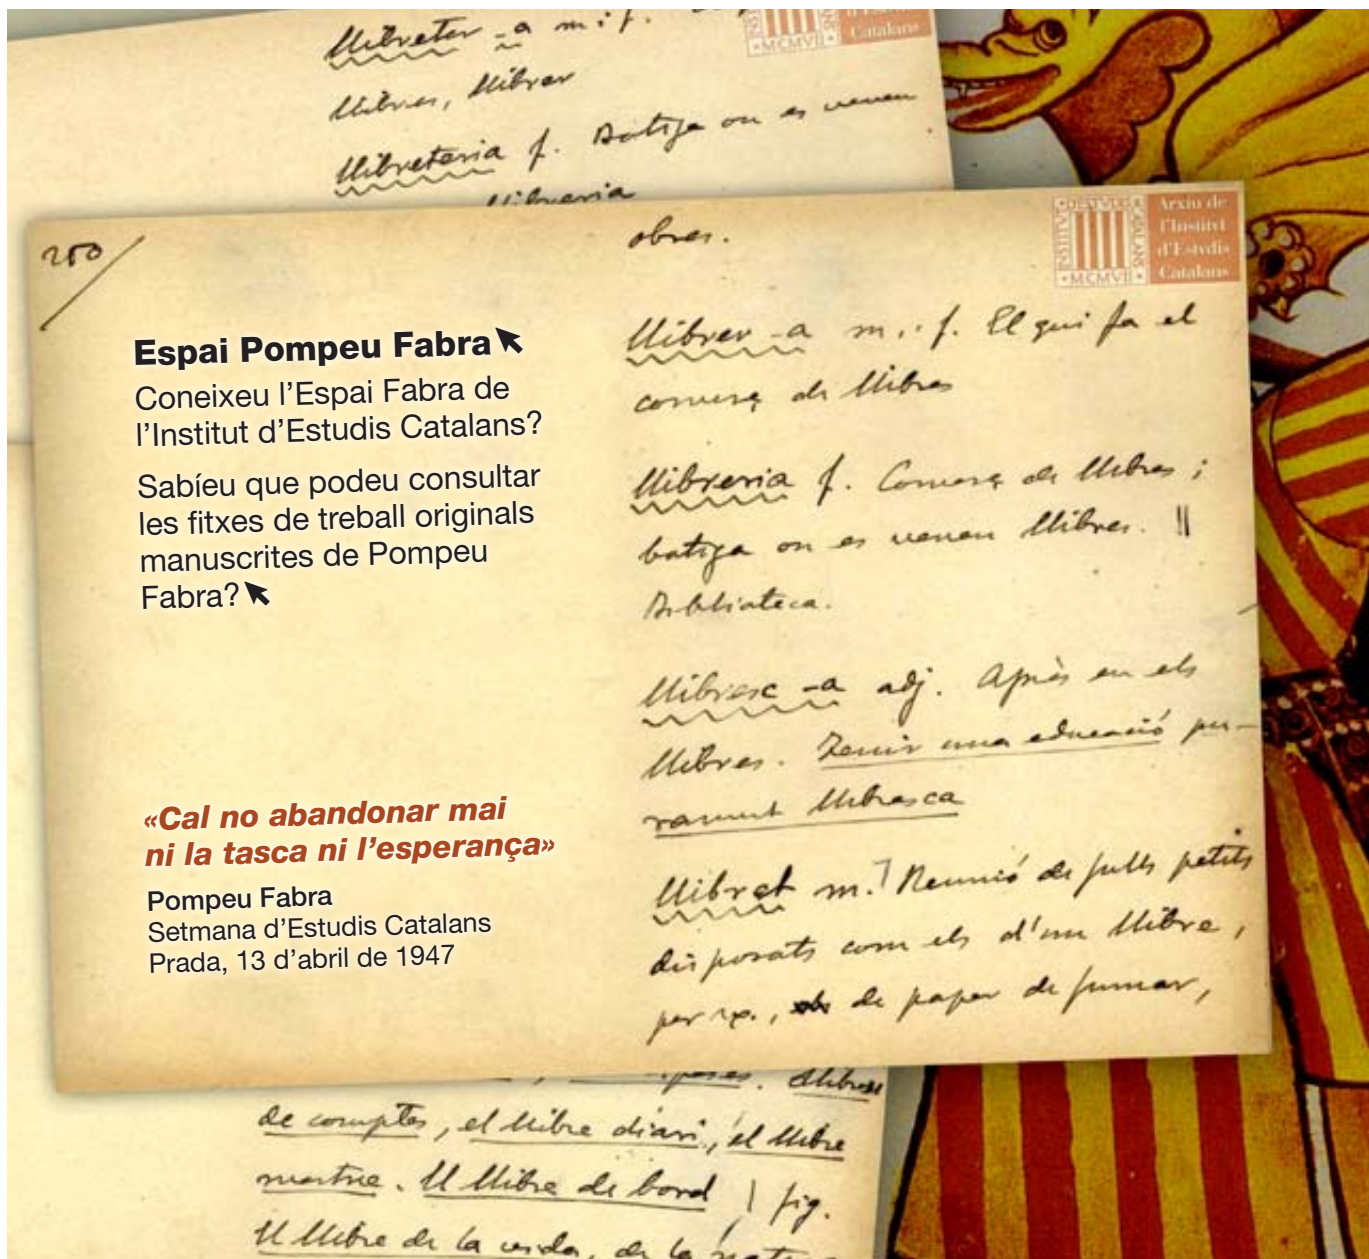 llibreter -a m. i f.
llibres, llibrer
llibreteria f. Botiga on es venen
llibreria
MCMVII
Catalans
250
obres.
INSTITVT D'ESTVDIS CATALANS
MCMVII
Arxiu de
l'Institvt
d'Estvdis
Catalans
Espai Pompeu Fabra
Coneixeu l'Espai Fabra de
l'Institut d'Estudis Catalans?
Sabíeu que podeu consultar
les fitxes de treball originals
manuscrites de Pompeu
Fabra?
«Cal no abandonar mai
ni la tasca ni l'esperança»
Pompeu Fabra
Setmana d'Estudis Catalans
Prada, 13 d'abril de 1947
llibrer -a m. i f. El qui fa el
comerç de llibres
llibreria f. Comerç de llibres;
botiga on es venen llibres. ||
Biblioteca.
llibresc -a adj. Après en els
llibres. Tenir una educació pu-
rament llibresca
llibret m. Reunió de fulls petits
disposats com els d'un llibre,
per ex., de paper de fumar,
llibre
de comptes, el llibre diari, el llibre
mestre. El llibre de bord | fig.
El llibre de la vida, de la